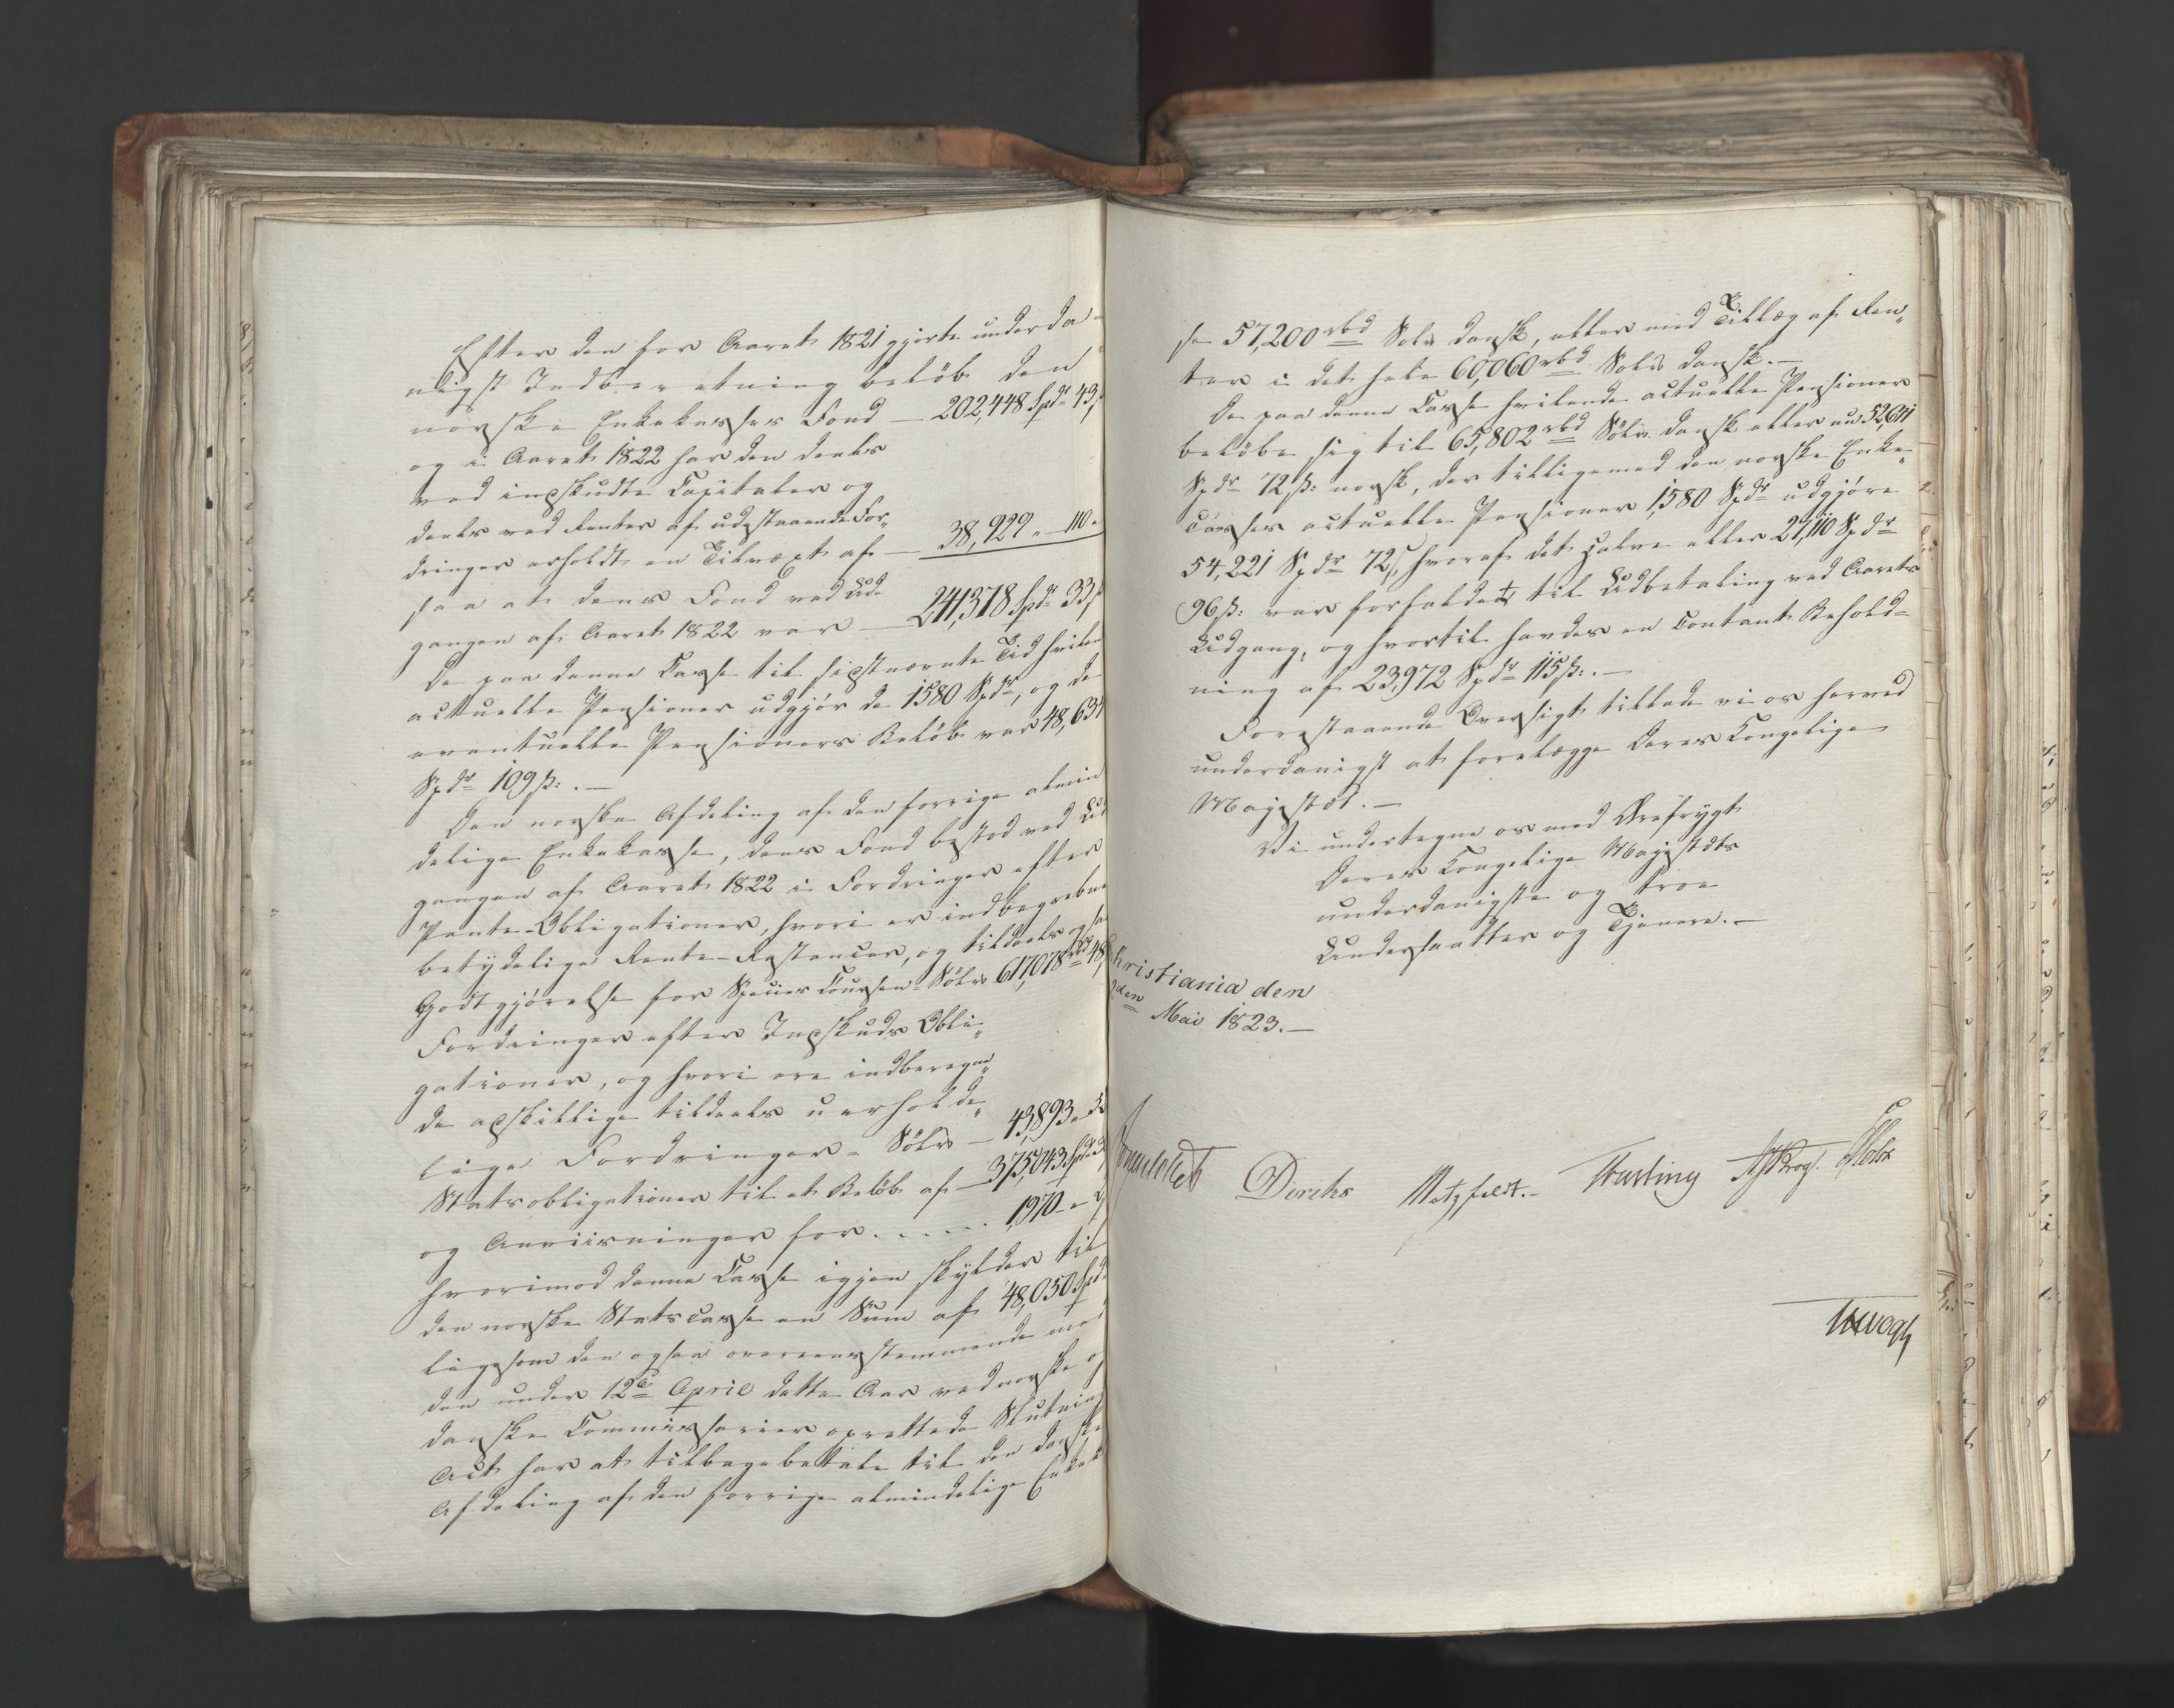 Efter den for Aaret 1821 gjorte underda-
nigst Indberetning beløb den
norske Enkekasses Fond — 202,448 Spdr 43 ß
og i Aaret 1822 har den deels
ved inskudte Capitaler og
deels ved Renter af udestaaende For-
dringer erholdt en Tilvæxt af — 38,929 " 110 "
saa at dens Fond ved Ud-
gangen af Aaret 1822 var — 241,378 Spdr 33 ß
De paa denne Casse til sidstnævnte Tid hvilende
actuelle Pensioner udgjørde 1580 Spdr, og de
eventuelle Pensioners Beløb var 48,634
Spdr 109 ß: . —
Den norske Afdeling af den forrige almin
delige Enkekasse, dens Fond bestod ved Ud
gangen af Aaret 1822 i Fordringer efter
Pante-Obligationer, hvori er indbegrebne
betydelige Rente-Restancer, og tildeels ogsaa
Godtgjørelse for Species Coursen - Sølv 617,078 rbd 48
Fordringer efter Indskuds Obli-
gationer, og hvori ere indberegne-
de adskillige tildeels uerholde-
lige Fordringer - Sølv — 43,893 "
Statsobligationer til et Beløb af — 375,043 Spdr
og Anviisninger for . . . . . 1,970 - "
hvorimod denne Casse igjen skylder til
den norske Statscasse en Sum af 48,050 Spdr
ligesom den ogsaa overeensstemmende med
den under 12te April dette Aar ved norske og
danske Commissarier oprettede Slutnings
Act har at tilbagebetale til den danske
Afdeling af den forrige almindelige Enkek
se 57,200 rbd Sølv dansk, eller med Tillæg af Ren-
ter i det hele 60,060 rbd Sølv dansk. —
De paa denne Casse hvilende actuelle Pensioner
beløbe sig til 65,802 rbd Sølv dansk eller nu 52,641
Spdr 72 ß: norsk, der tilligemed den norske Enke-
Casses actuelle Pensioner 1,580 Spdr udgjøre
54,221 Spdr 72 ß, hvoraf det halve eller 27,110 Spdr
96 ß: var forfaldet til Udbetaling ved Aarets
Udgang, og hvortil havdes en Contant Behold-
ning af 23,972 Spdr 115 ß: . —
Forestaaende Oversigt tillade vi os herved
underdanigst at forelægge Deres Kongelige
Majestæt. —
Vi undertegne os med Ærefrygt
Deres Kongelige Majestæts
underdanigste og troe
Undersaatter og Tjenere. —
Christiania den
den Mai 1823. —
Diriks Motzfeldt. —